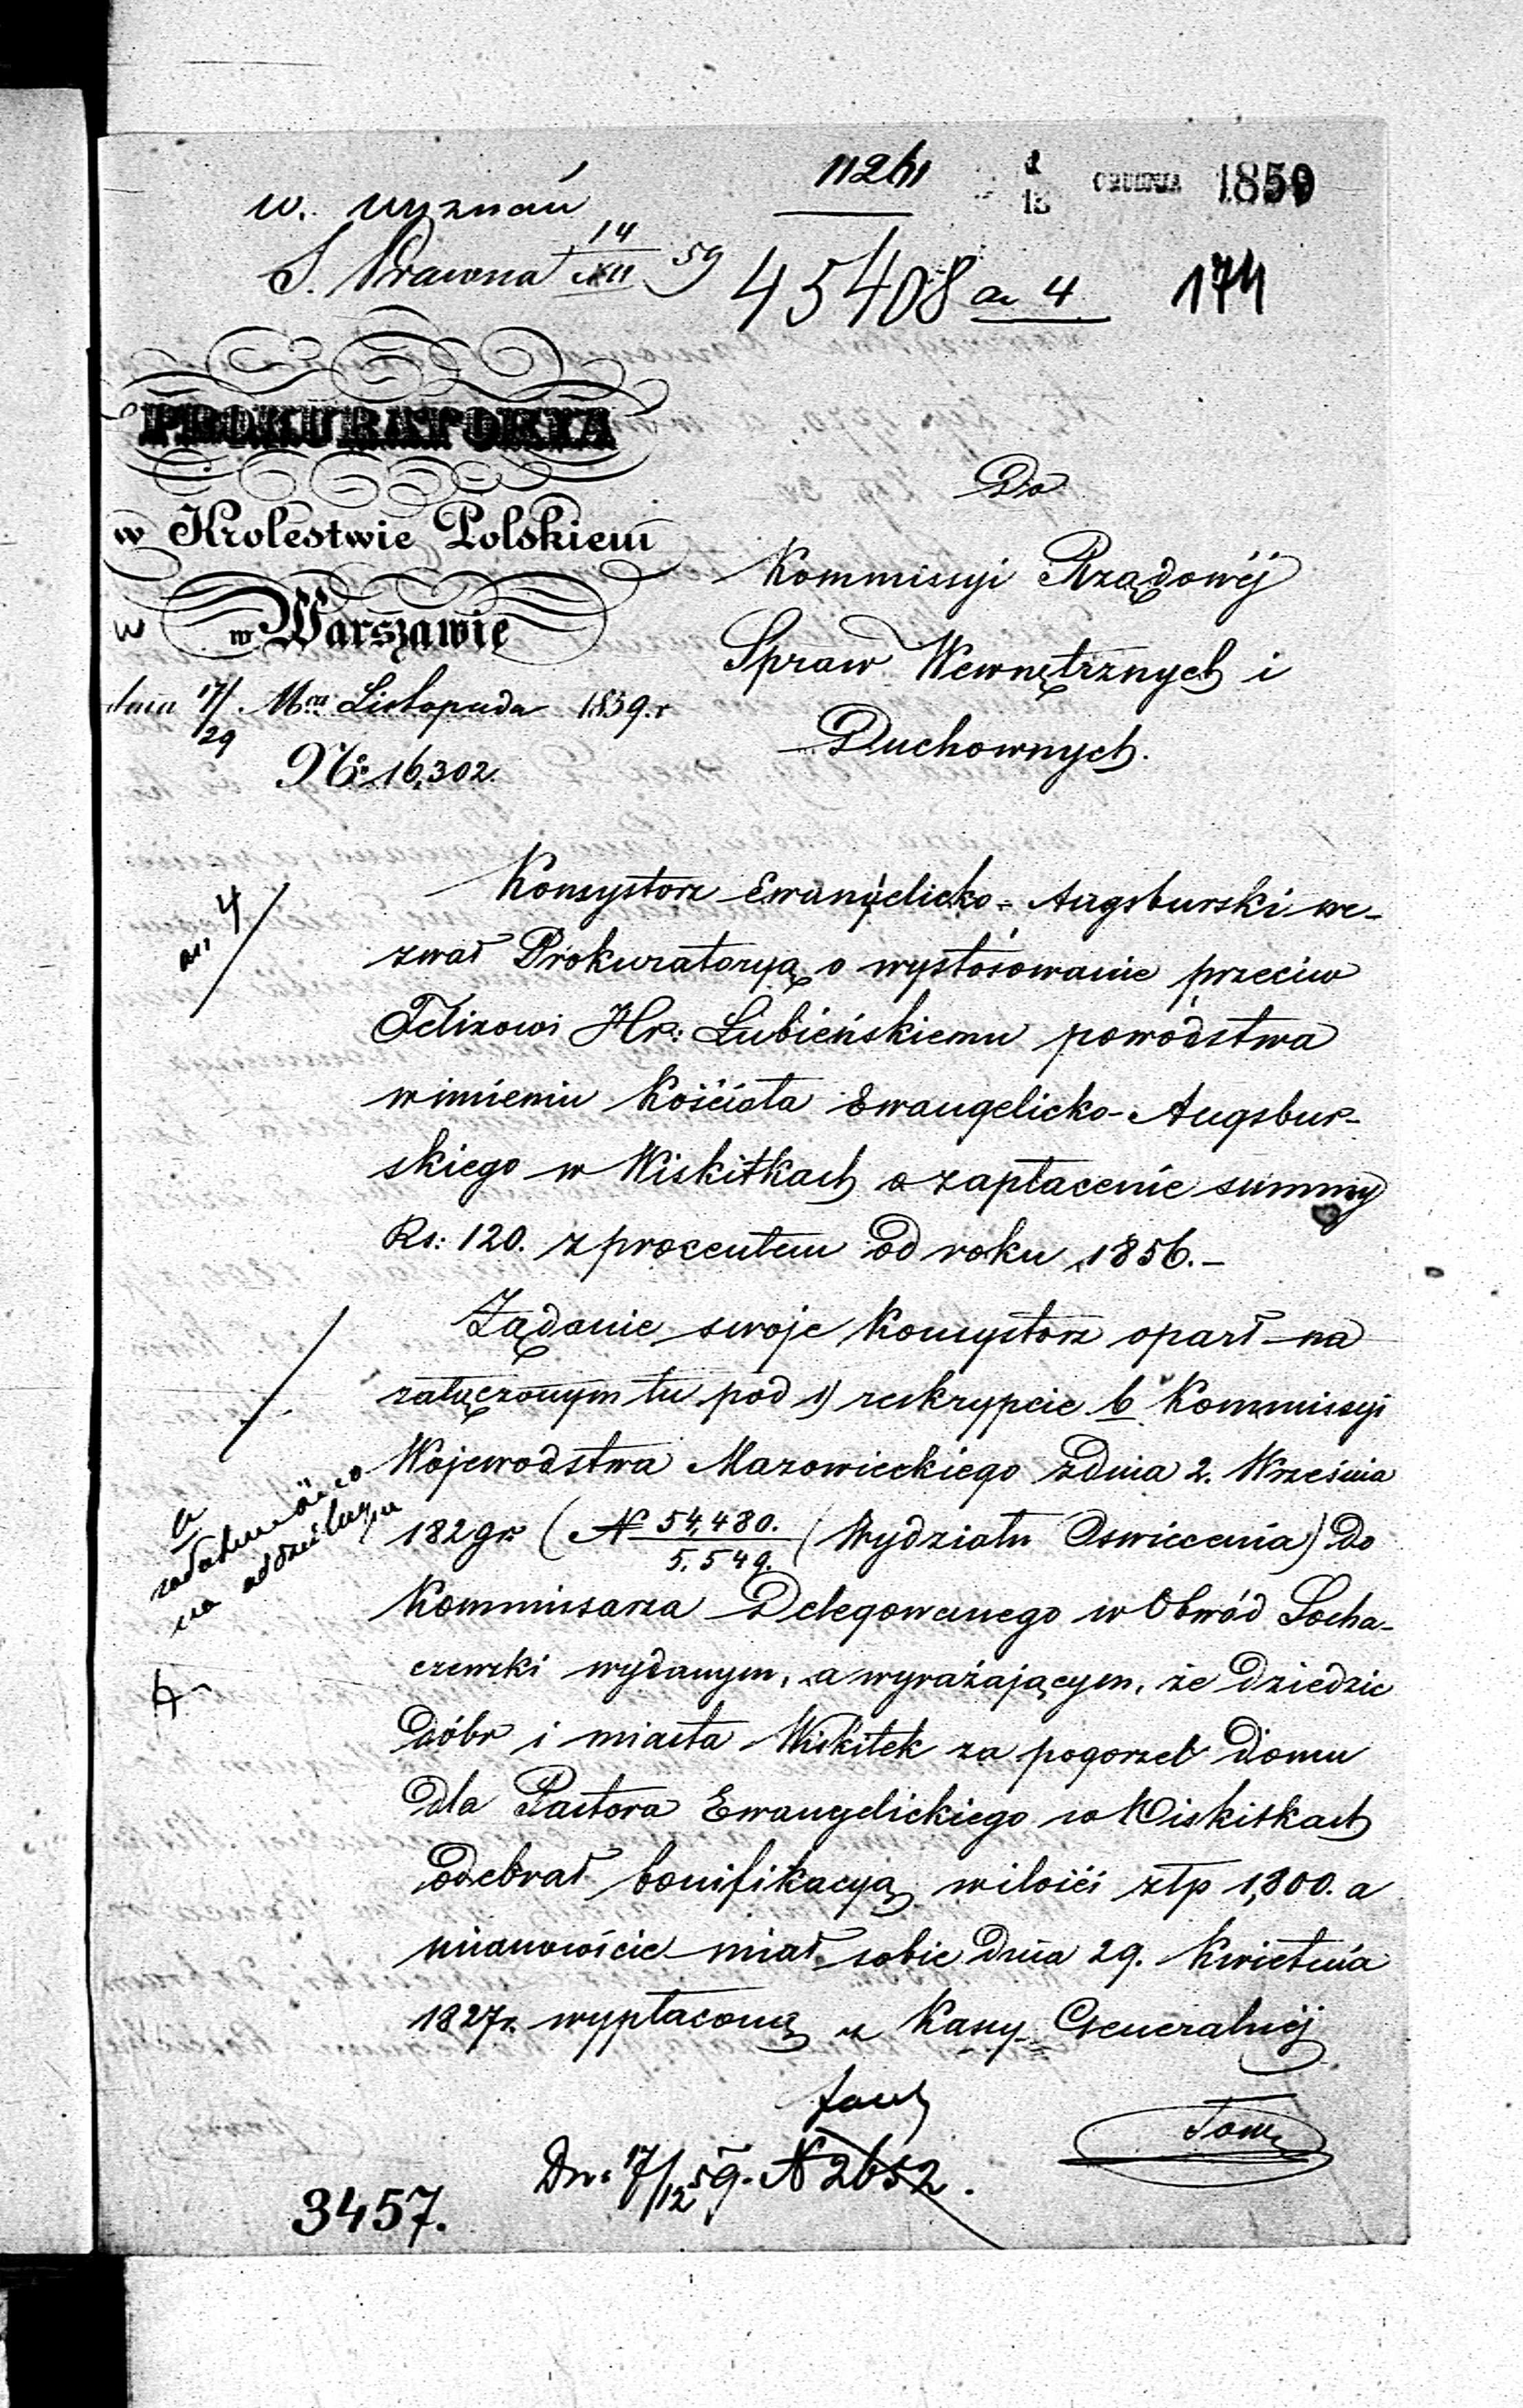 11261
1
13
GRUDNIA 1859
w. wyznań
S. Prawna 14/XII 59
45408 a 4
174
PROKURATORYA
w Krolestwie Polskiem
w w Warszawie
dnia 17/29 Mca Listopada 1859.r
No 16,302.
Do
Kommissyi Rządowéj
Spraw Wewnętrznych i
Duchownych.
Konsystorz Ewangelicko-Augsburski we-
zwał Prokuratoryą o wystosowanie przeciw
Felixowi Hr: Lubieńskiemu powództwa
w imieniu Kościoła Ewangelicko-Augsbur-
skiego w Wiskitkach o zapłacenie summy
Rs: 120. z procentem od roku 1856.-
Żądanie swoje Konsystorz oparł na
załączonym tu pod 1) reskrypcie b Kommissyi
Województwa Mazowieckiego z dnia 2. Września
1829r (N 54,480./5,549. (Wydziału Oswiecenia) do
Kommissarza Delegowanego w Obwód Socha-
czewski wydanym, a wyrażającym, że dziedzic
dóbr i miasta Wiskitek za pogorzel domu
dla Pastora Ewangelickiego w Wiskitkach
odebrał bonifikacyą w ilości złp 1,800. a
mianowicie miał sobie dnia 29. Kwietnia
1827r. wypłaconą z Kassy Generalnéj
Tom
Dn: 17/12 59. N 2652.
3457.